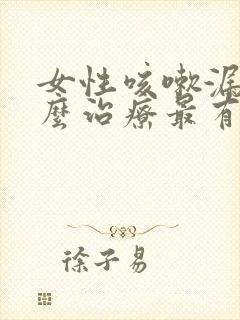 女性咳嗽漏
麼治療最有
徐子易